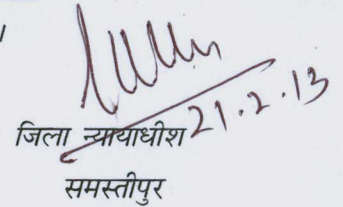 ।
21.2.13
जिला न्यायाधीश
समस्तीपुर